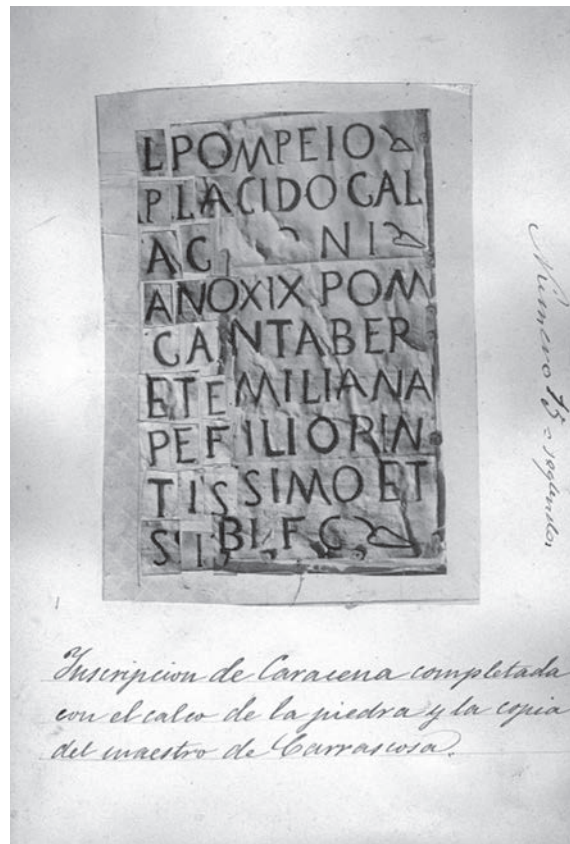 L POMPEIO
PLACIDO GAL
AC NI
ANOXIX POM
CANTABER
ETEMILIANA
PEFILIORIN
TISSIMO ET
SIBI.F.C.
Numero
Inscripcion de Caracena completada
con el calco de la piedra y la copia
del maestro de Carrascosa.